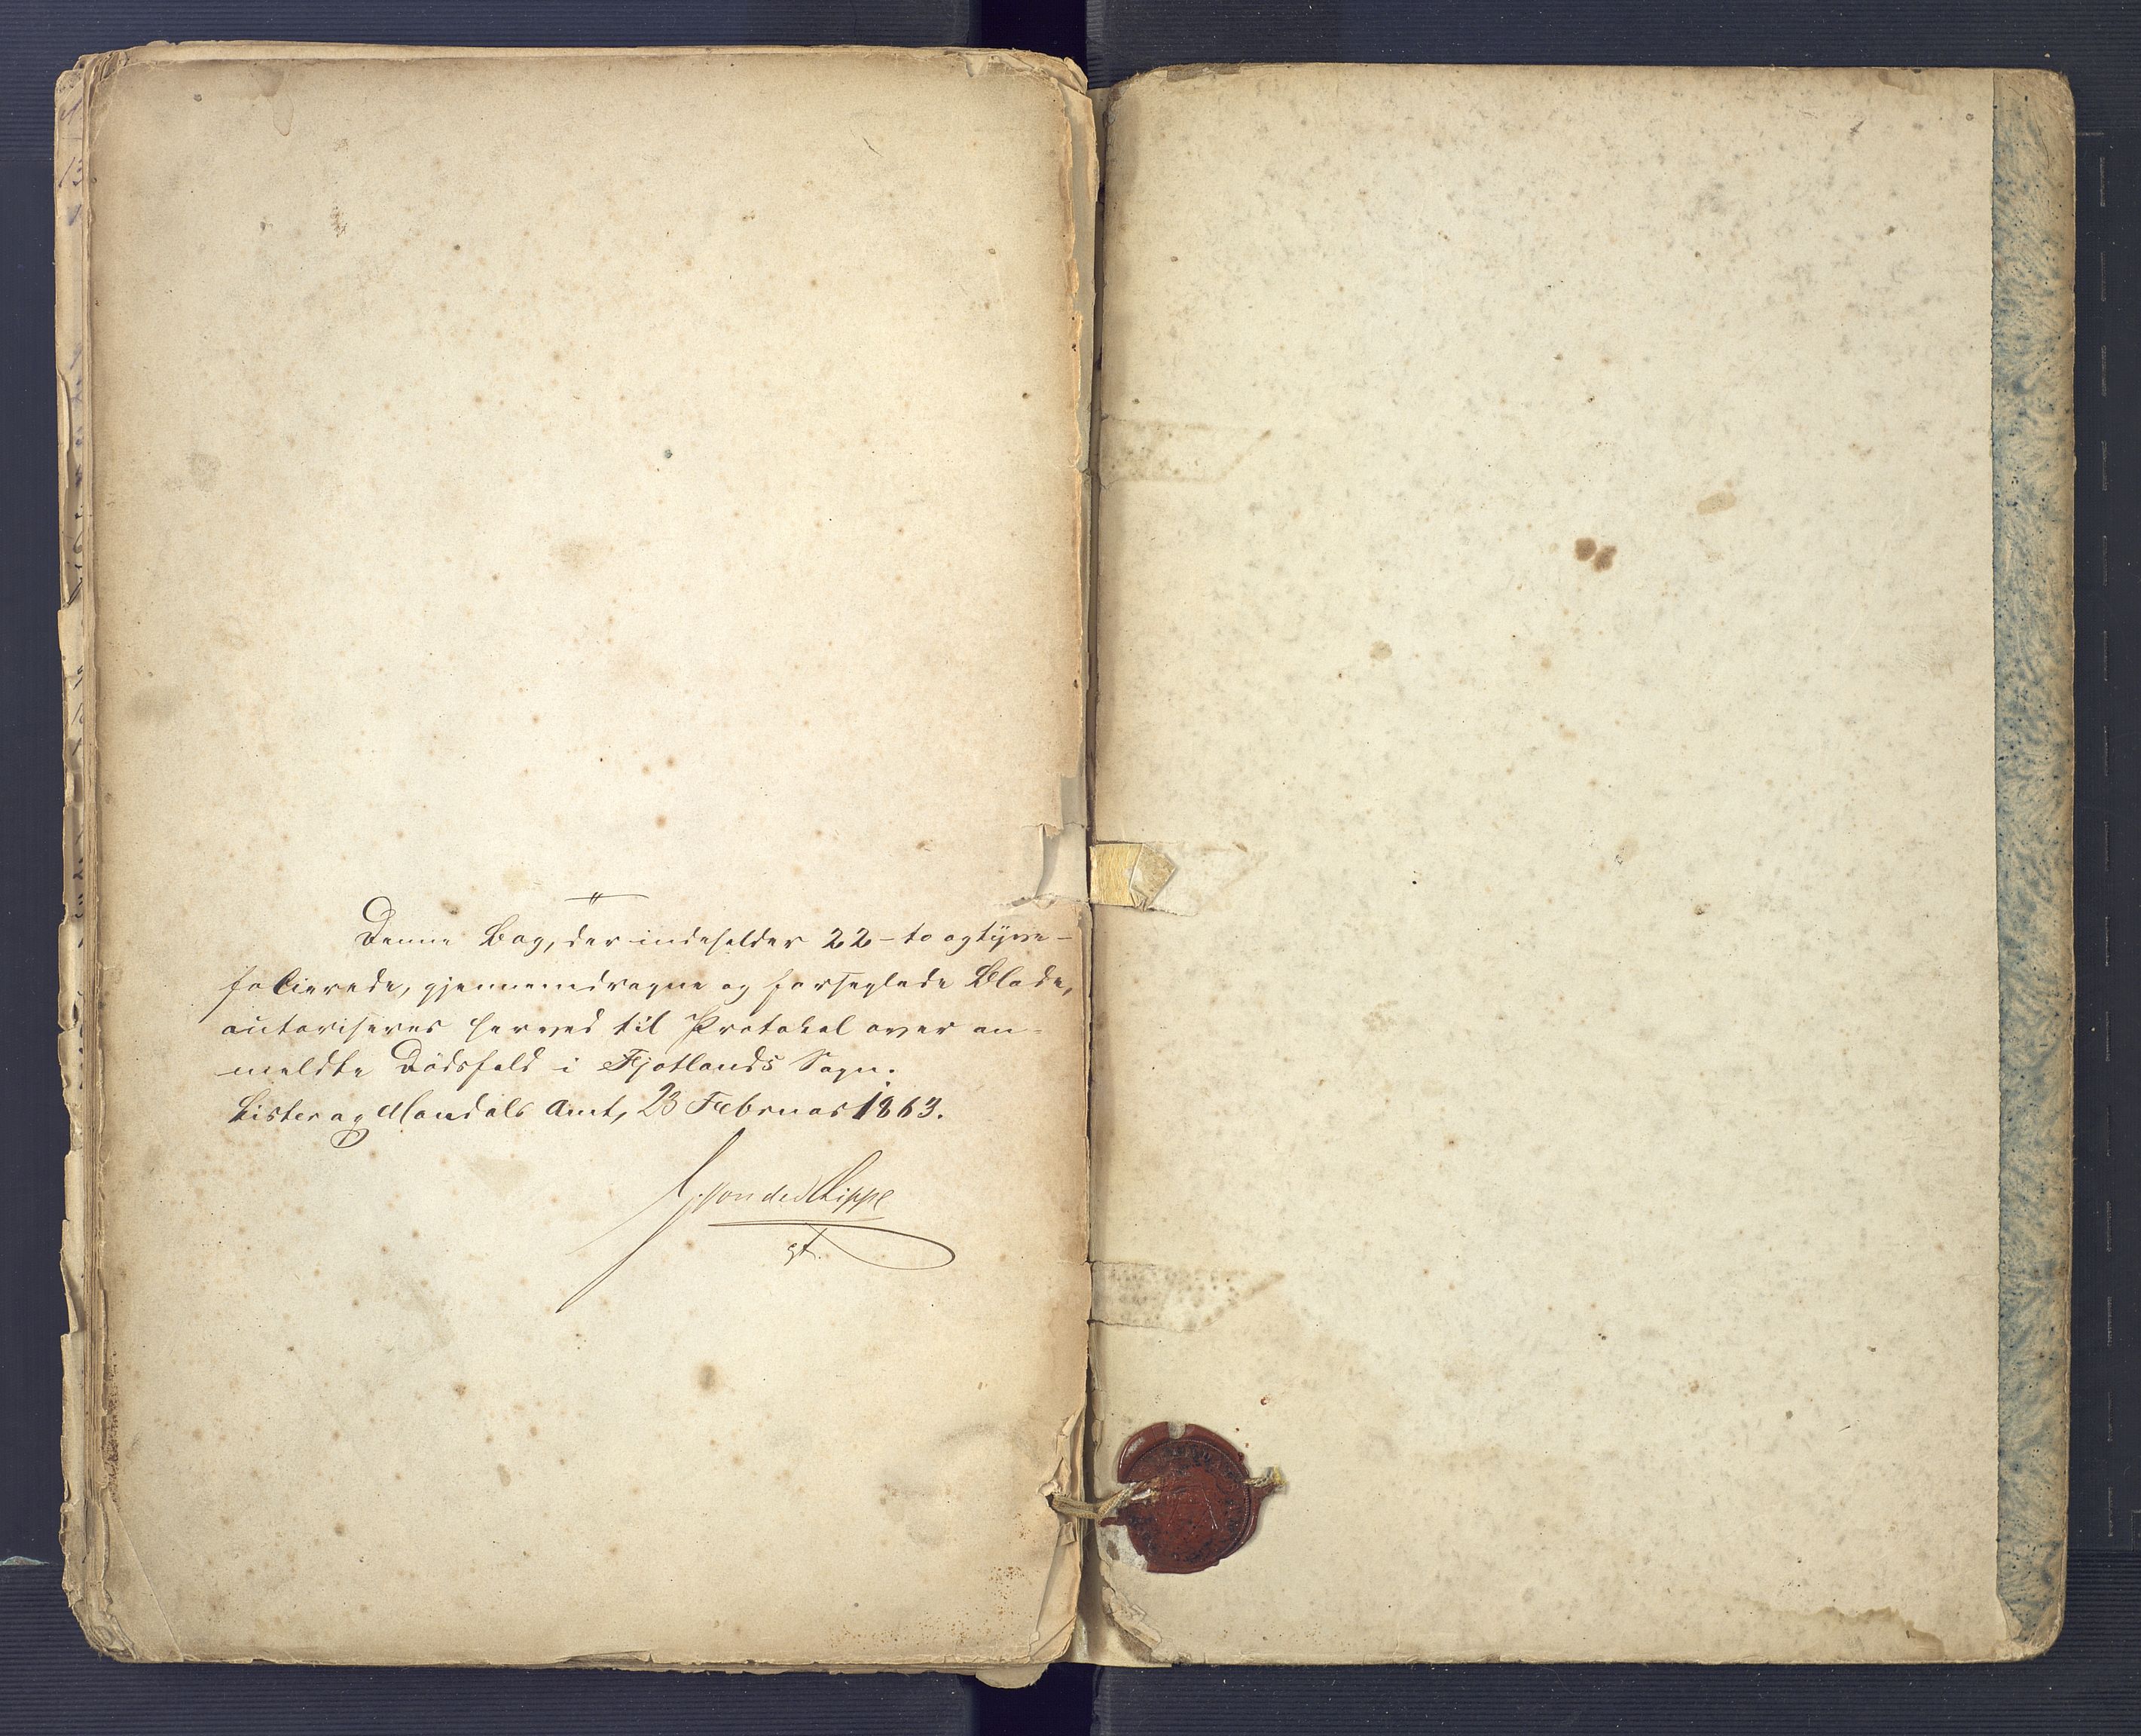 Denne Bog, der indeholder 22 - to og tyve -
folierede, gjennemdragne og forseglede Blade,
autoriseres herved til Protokol over an-
meldte Dödsfald i Fjotlands Sogn.
Lister og Mandals Amt, 23 Februar 1863.
J. von der Lippe
gt.